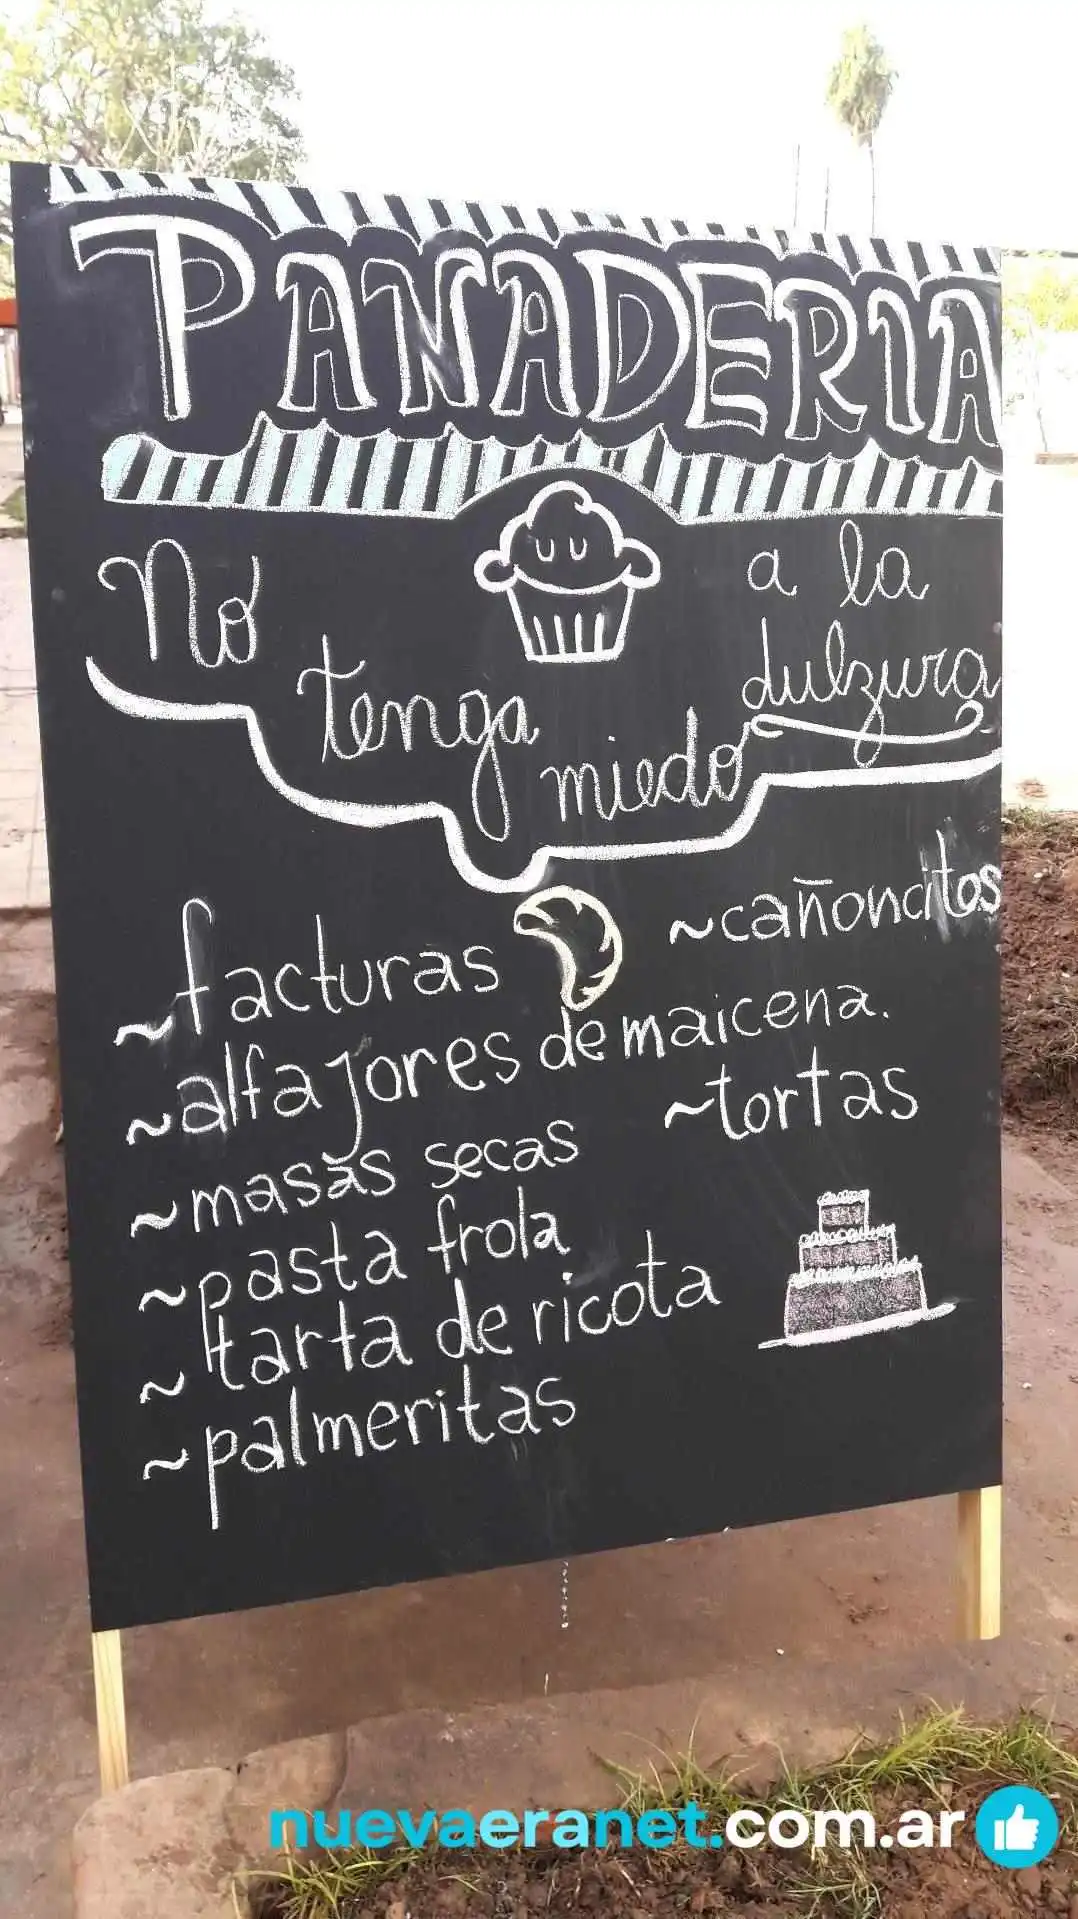 PANADERIA
No tenga miedo a la dulzura
~facturas
~cañoncitos
~alfajores de maicena.
~tortas
~masas secas
~pasta frola
~tarta de ricota
~palmeritas
nuevaeranet.com.ar